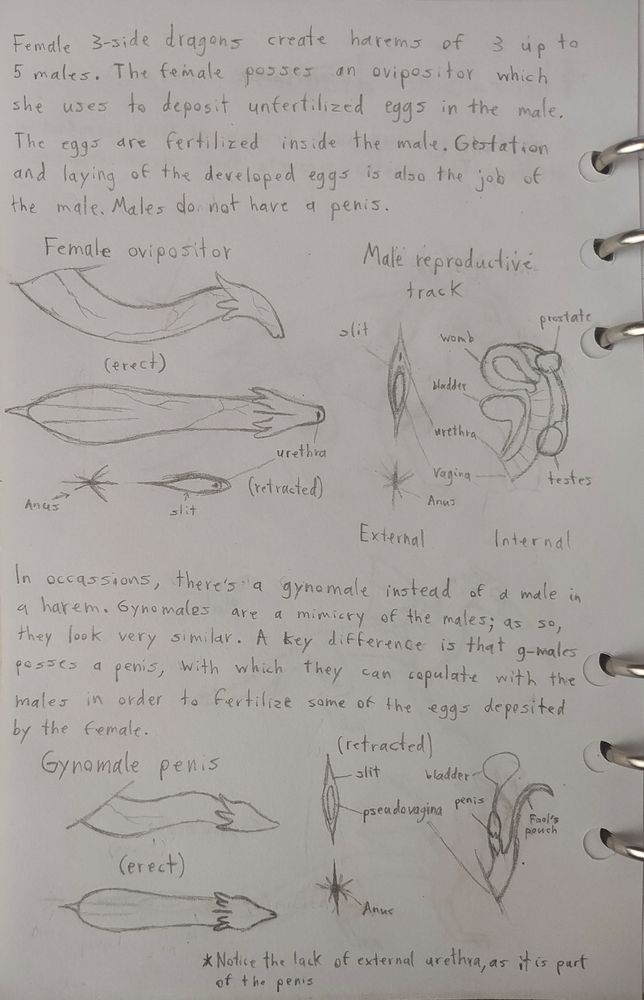 Female 3-side dragons create harems of 3 up to
5 males. The female posses an ovipositor which
she uses to deposit unfertilized eggs in the male.
The eggs are fertilized inside the male. Gestation
and laying of the developed eggs is also the job of
the male. Males do not have a penis.
Female ovipositor
(erect)
urethra
Anus
slit
(retracted)
Male reproductive
track
slit
womb
prostate
bladder
urethra
vagina
testes
Anus
External
Internal
In occassions, there's a gynomale instead of a male in
a harem. Gynomales are a mimicry of the males; as so,
they look very similar. A key difference is that g-males
posses a penis, with which they can copulate with the
males in order to fertilize some of the eggs deposited
by the female.
Gynomale penis
(erect)
(retracted)
slit
bladder
pseudovagina
penis
Fool's
pouch
Anus
*Notice the lack of external urethra, as it is part
of the penis